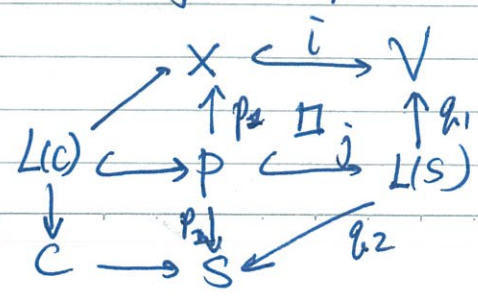 i
X V
p₁ □ q₁
L(C) P j L(S)
p₂ q₂
C S